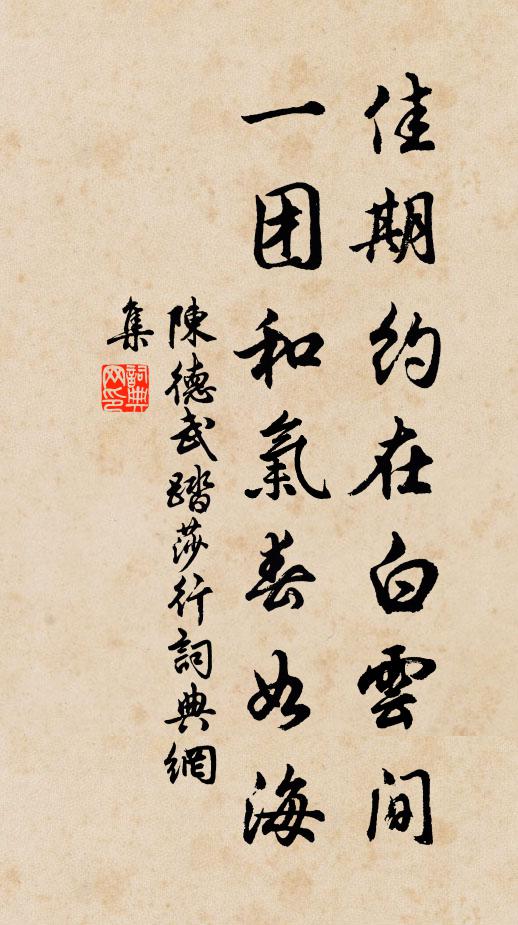 佳期约在白雲间
一团和氣春如海
陳德武踏莎行詞典網
集
詞典網印